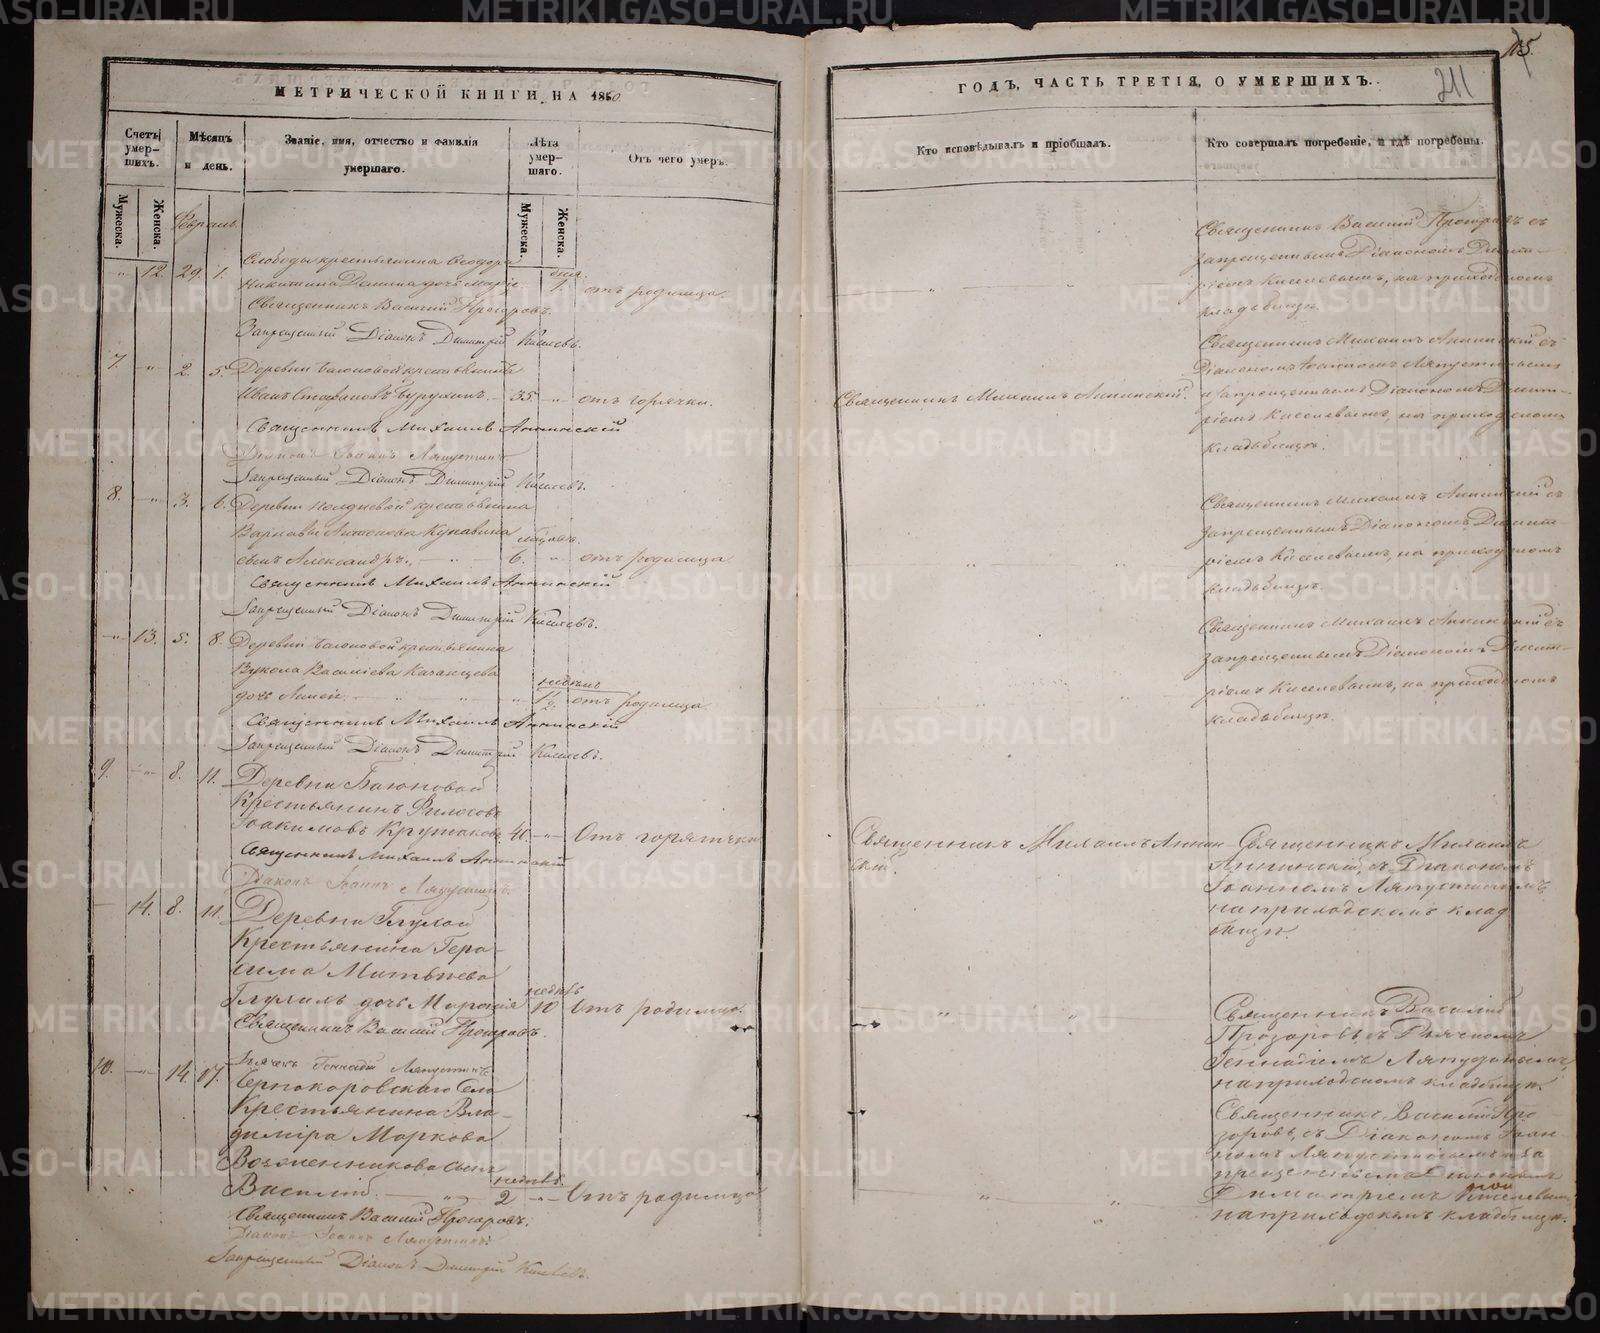 МЕТРИЧЕСКОЙ КНИГИ НА 1860
Счетъ умер-шихъ.
Мѣсяцъ и день.
Званіе, имя, отчество и фамилія умершаго.
Лѣта умер-шаго.
Отъ чего умеръ.
Мужеска.
Женска.
Мужеска.
Женска.
Февраль
Слободы крестьянина Ѳеодора
12. 29. 1.
дня
дочь Марія 1. отъ родимца.
Священникъ Василій Прозоровъ.
Запрещенный Діаконъ Димитрій Киселевъ.
7. 2. 5. Деревни Баюновой крестьянинъ
Иванъ Стефановъ 35 отъ горячки.
Священникъ Михаилъ Аннинскій
Діаконъ Іоаннъ Ляпустинъ
Запрещенный Діаконъ Димитрій Киселевъ.
8. 3. 6. Деревни крестьянина
сынъ Александръ, 6. отъ родимца
Священникъ Михаилъ Аннинскій
Запрещенный Діаконъ Димитрій Киселевъ.
13. 5. 8. Деревни Баюновой крестьянина
Вукола Васильева Казанцева
недѣль
дочь 1½ отъ родимца.
Священникъ Михаилъ Аннинскій
Запрещенный Діаконъ Димитрій Киселевъ.
9. 8. 11. Деревни Баюновой
Крестьянинъ
Іоакимовъ 40. Отъ горячки
Священникъ Михаилъ Аннинскій
Діаконъ Іоаннъ Ляпустинъ.
14. 8. 11. Деревни Глухой
Крестьянина Гера-
сима Матвѣева
недѣль
Глухихъ дочь 10 Отъ родимца.
Священникъ Василій Прозоровъ.
Дьячекъ Геннадій Ляпустинъ
10. 14. 17. Чернокоровскаго Села
Крестьянина Вла-
диміра Маркова
сынъ
недѣль
Василій. 2 Отъ родимца
Священникъ Василій Прозоровъ.
Діаконъ Іоаннъ Ляпустинъ.
Запрещенный Діаконъ Димитрій Киселевъ.
105.
211
ГОДЪ, ЧАСТЬ ТРЕТІЯ, О УМЕРШИХЪ.
Кто исповѣдывалъ и пріобщалъ.
Кто совершалъ погребеніе, и гдѣ погребены.
Священникъ Василій Прозоровъ съ
запрещеннымъ Діакономъ Димит-
ріемъ Киселевымъ, на приходскомъ
кладбищѣ.
Священникъ Михаилъ Аннинскій.
Священникъ Михаилъ Аннинскій съ
Діакономъ Іоанномъ Ляпустинымъ
и запрещеннымъ Діакономъ Димит-
ріемъ Киселевымъ, на приходскомъ
кладбищѣ.
Священникъ Михаилъ Аннинскій съ
запрещеннымъ Діакономъ Димит-
ріемъ Киселевымъ, на приходскомъ
кладбищѣ.
Священникъ Михаилъ Аннинскій съ
запрещеннымъ Діакономъ Димит-
ріемъ Киселевымъ, на приходскомъ
кладбищѣ.
Священникъ Михаилъ Аннин-
скій.
Священникъ Михаилъ
Аннинскій, съ Діакономъ
Іоанномъ Ляпустинымъ
на приходскомъ клад
бищѣ.
Священникъ Василій
Прозоровъ, съ Дьячкомъ
Геннадіемъ Ляпустинымъ,
на приходскомъ кладбищѣ.
Священникъ Василій Про
зоровъ, съ Діакономъ Іоан-
номъ Ляпустинымъ и за
прещеннымъ Діакономъ
Димитріемъ Киселевымъ
на приходскомъ кладбищѣ.
METRIKI.GASO-URAL.RU